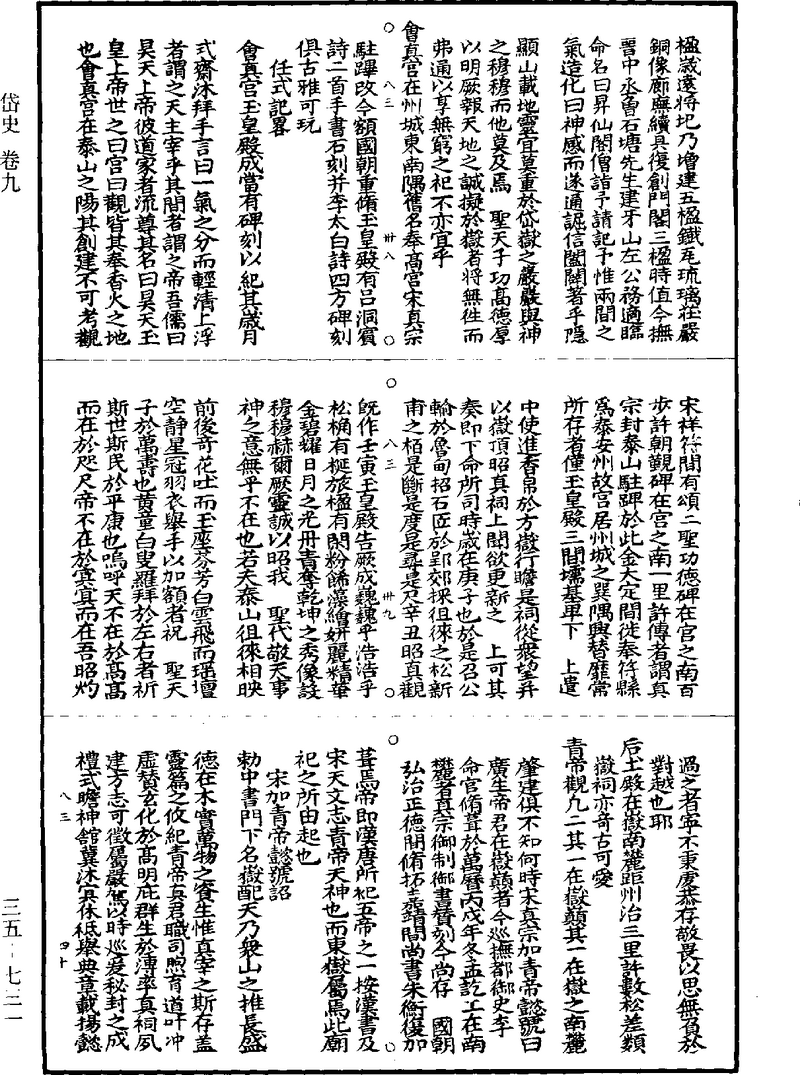 岱史 卷九
楹歲遠將圮乃增建五楹鐵瓦琉璃莊嚴
銅像廊廡續具復創門閣三楹時值今撫
晋中丞魯石塘先生建牙山左公務適臨
命名曰昇仙閣僧詣予請記予惟兩間之
氣造化曰神感而遂通誠信闔闢著乎隱
顯山載地靈宜莫重於岱嶽之嚴嚴與神
之穆穆而他莫及焉 聖天子功高德厚
以明厥報天地之誠擬於嶽者將無徃而
弗通以享無窮之祀不亦宜乎
會真宮在州城東南隅舊名奉高宮宋真宗
駐蹕改今額國朝重脩玉皇殿有吕洞賓
詩二首手書石刻并李太白詩四方碑刻
俱古雅可玩
任式記畧
會真宮玉皇殿成當有碑刻以紀其歲月
式齋沐拜手言曰一氣之分而輕清上浮
者謂之天主宰乎其間者謂之帝吾儒曰
昊天上帝彼道家者流尊其名曰昊天玉
皇上帝世之曰宮曰觀皆其奉香火之地
也會真宮在泰山之陽其創建不可考觀
八三
卅八
宋祥符間有頌二聖功德碑在宮之南百
步許朝覲碑在宮之南一里許傳者謂真
宗封泰山駐蹕於此金大定間徙奉符縣
為泰安州故宮居州城之巽隅興替靡常
所存者僅玉皇殿三間壖基卑下 上遣
中使進香帛於方嶽行瞻是祠從衆望幷
以嶽頂昭真祠上聞欲更新之 上可其
奏即下命所司時歲在庚子也於是召公
輸於魯甸招石匠於郢郊採徂徠之松新
甫之栢是斷是度是尋是尺辛丑昭真觀
既作壬寅玉皇殿告厥成巍巍乎浩浩乎
松桷有梴旅楹有閑粉餙藻繪姸麗精華
金碧耀日月之光丹青奪乾坤之秀像設
穆穆赫爾厥靈誠以昭我 聖代敬天事
神之意無乎不在也若夫泰山徂徠相映
前後奇花吐而玉座芬芳白雲飛而瑶壇
空静星冠羽衣舉手以加額者祝 聖天
子於萬壽也黄童白叟羅拜於左右者祈
斯世斯民於平康也嗚呼天不在於高高
而在於咫尺帝不在於㝠㝠而在吾昭灼
八三
卅九
過之者寜不秉虔恭存敬畏以思無負於
對越也耶
后土殿在嶽南麓距州治三里許數松差類
嶽祠亦奇古可愛
青帝觀凡二其一在嶽巔其一在嶽之南麓
肇建俱不知何時宋真宗加青帝懿號曰
廣生帝君在嶽巔者今巡撫都御史李
命官脩葺於萬曆丙戌年冬孟訖工在南
麓者真宗御制御書贊刻今尚存 國朝
弘治正德開脩拓嘉靖間尚書朱衡復加
葺焉帝即漢唐所祀五帝之一按漢書及
宋天文志青帝天神也而東嶽屬焉此廟
祀之所由起也
宋加青帝懿號詔
勅中書門下名嶽配天乃衆山之推長盛
德在木實萬物之資生惟真宰之斯存盖
靈篇之攸紀青帝真君職司煦育道叶冲
虛賛玄化於高明庇群生於溥率真祠夙
建方志可徵屬嚴駕以時巡爰秘封之成
禮式瞻神舘冀沐㝠休秪舉典章載揚懿
八三
四十
三五-七三一